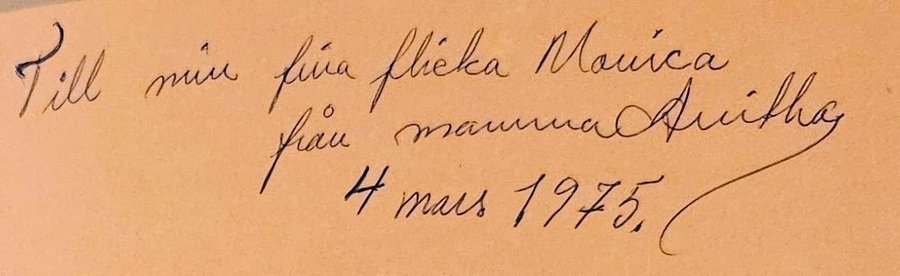 Till min fina flicka Monica
från mamma Anitha
4 mars 1975.